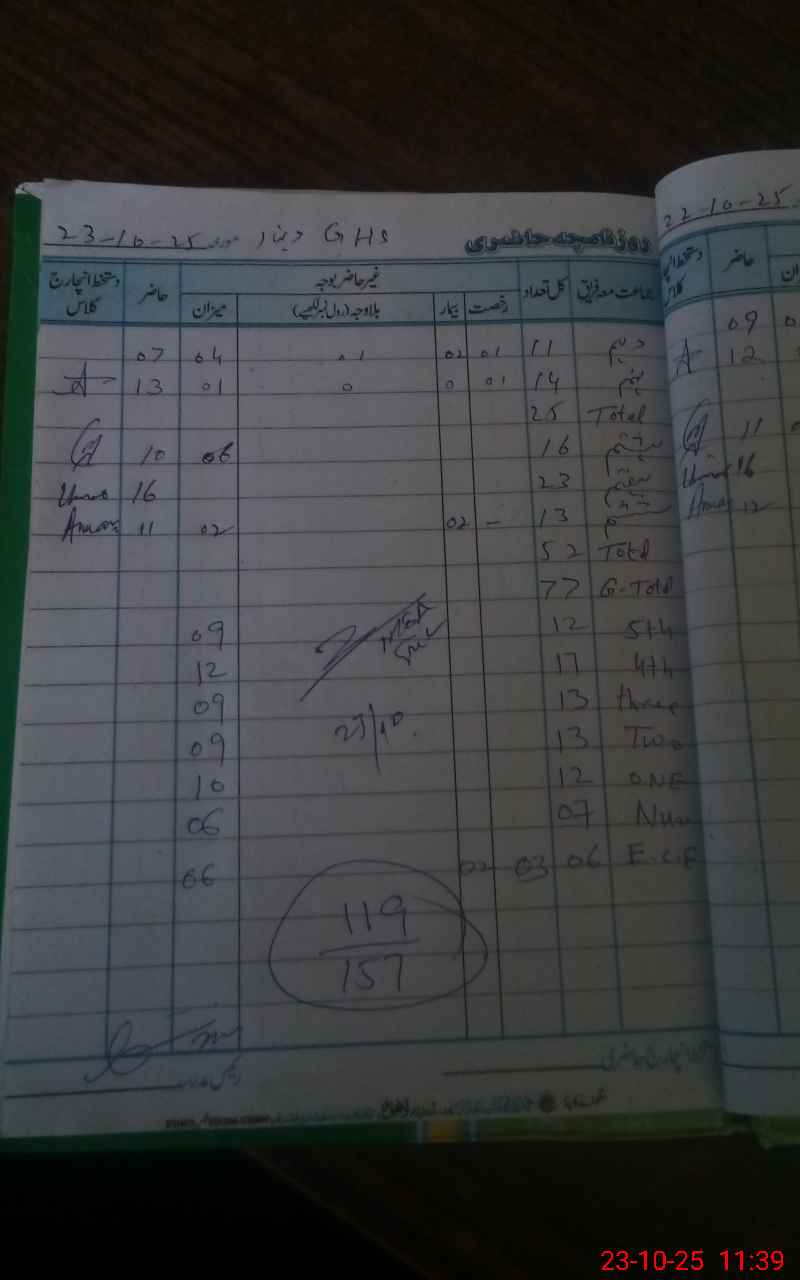 روزنامچہ حاضری GHS دینار مورخہ 23-10-25
جماعت معہ فریق کل تعداد غیر حاضر بوجہ حاضر دستخط انچارج کلاس
رخصت بیمار بلاوجہ (رول نمبر لکھیے) میزان
دہم 11 01 02 01 04 07
نہم 14 01 0 0 01 13
Total 25
ہشتم 16 06 10
ہفتم 23 16
ششم 13 - 02 02 11
Total 52
G-Total 77
5th 12 09
4th 17 12
three 13 09
Two 13 09
ONE 12 10
Nur 07 06
E.C.E 06 03 02 06
119
157
22-10-25
حاضر دستخط انچارج کلاس
09
12
11
16
12
23-10-25 11:39